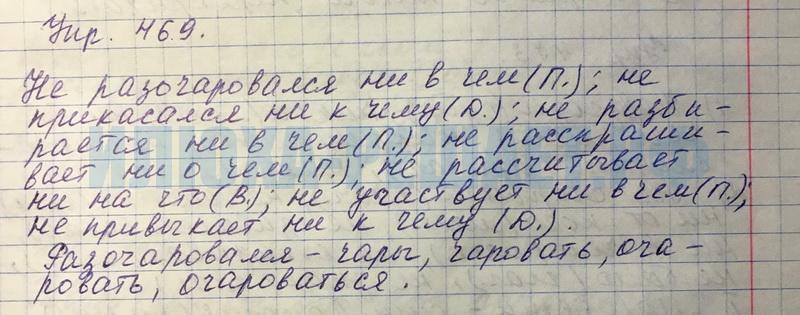 Упр. 469.
Не разочаровался ни в чем (П.); не
прикасался ни к чему (Д.); не разби-
рается ни в чем (П.); не расскраши-
вает ни о чем (П.); не рассчитывает
ни на что (В.); не участвует ни в чем (П.);
не привыкает ни к чему (Д.).
Разочаровался - чары, чаровать, оча-
ровать, очароваться.